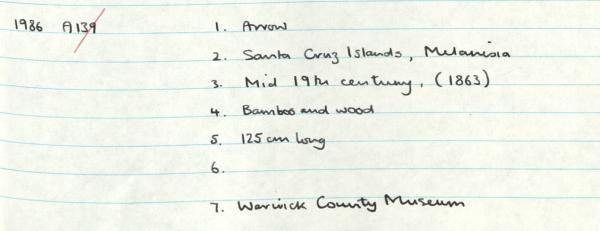 1986 A139 1. Arrow
2. Santa Cruz Islands, Melanisia
3. Mid 19th century, (1863)
4. Bamboo and wood
5. 125 cm long
6.
7. Warwick County Museum